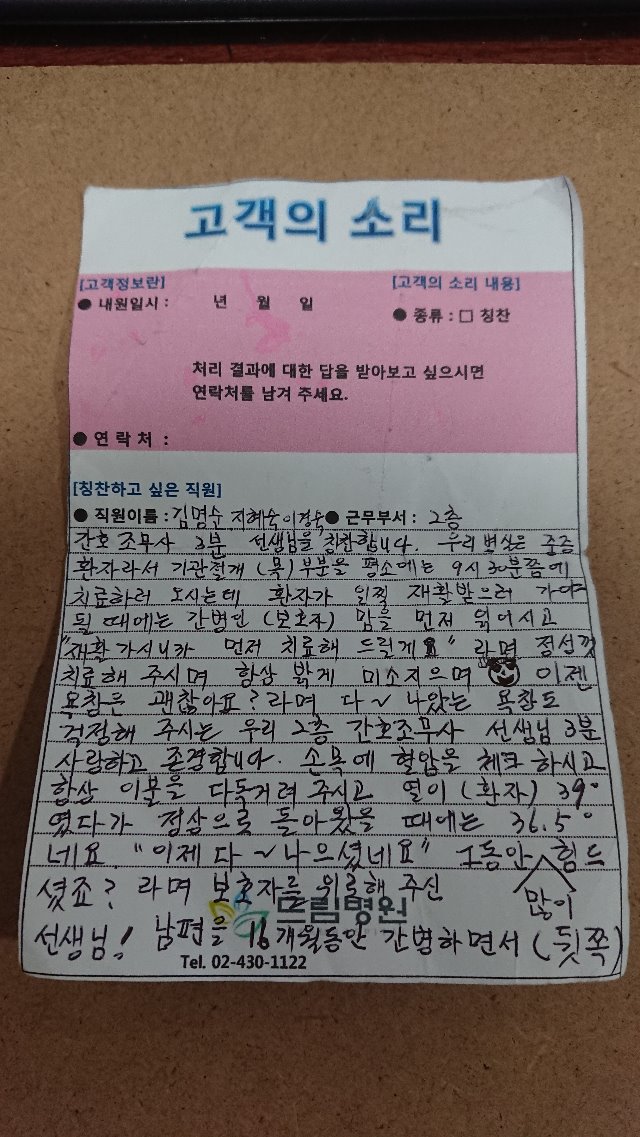 고객의 소리
[고객정보란]
● 내원일시 : 년 월 일
[고객의 소리 내용]
● 종류 : □ 칭찬
처리 결과에 대한 답을 받아보고 싶으시면
연락처를 남겨 주세요.
● 연 락 처 :
[칭찬하고 싶은 직원]
● 직원이름 : 김명순 지혜숙 이경숙 ● 근무부서 : 2층
간호 조무사 3분 선생님을 칭찬합니다. 우리 병실은 중증
환자라서 기관절개 (목) 부분을 평소에는 9시 30분쯤에
치료하러 오시는데 환자가 일찍 재활받으러 가야
될 때에는 간병인 (보호자) 맘을 먼저 읽어시고
"재활 가시니까 먼저 치료해 드릴게요" 라며 정성껏
치료해 주시며 항상 밝게 미소지으며 이젠
욕창은 괜찮아요? 라며 다~ 나았는 욕창도
걱정해 주시는 우리 2층 간호조무사 선생님 3분
사랑하고 존경합니다. 손목에 혈압을 체크 하시고
항상 이불을 다독거려 주시고 열이 (환자) 39°
였다가 정상으로 돌아왔을 때에는 36.5°
네요. "이제 다~나으셨네요" 그동안 많이 힘드
셨죠? 라며 보호자를 위로해 주신
선생님! 남편을 16개월동안 간병하면서 (뒷쪽)
드림병원
Tel. 02-430-1122